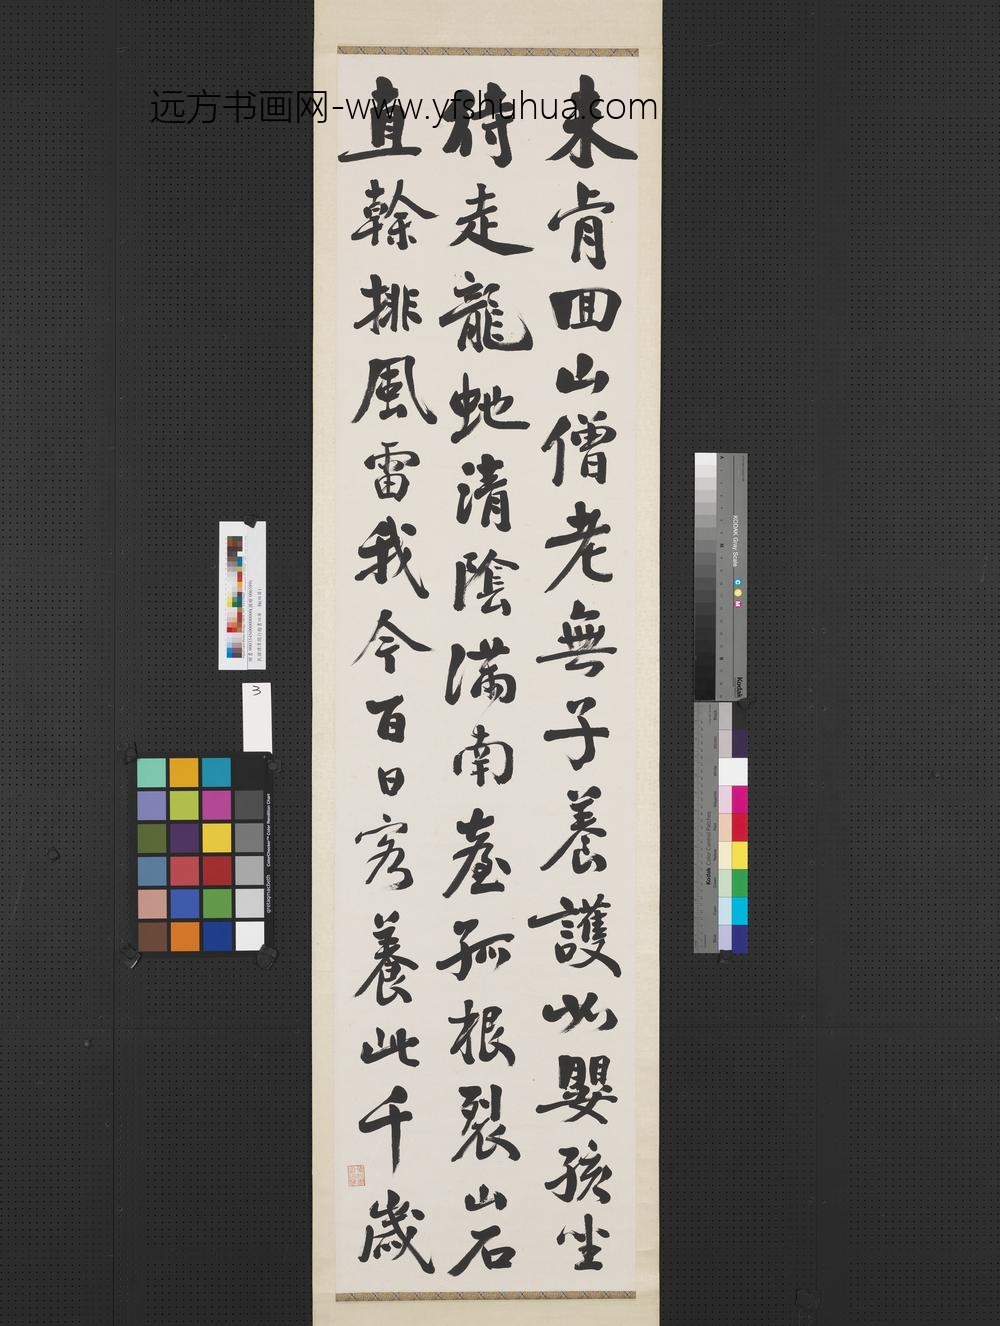 远方书画网-www.yfshuhua.com
来肯回山僧老無子養護如嬰孩坐
待走龍虵清陰滿南臺孤根裂山石
直榦排風雷我今百日客養此千歲
3
KODAK Gray Scale
C
Y
M
Kodak
Kodak Color Control Patches
ColorChecker™ Color Rendition Chart
gretagmacbeth